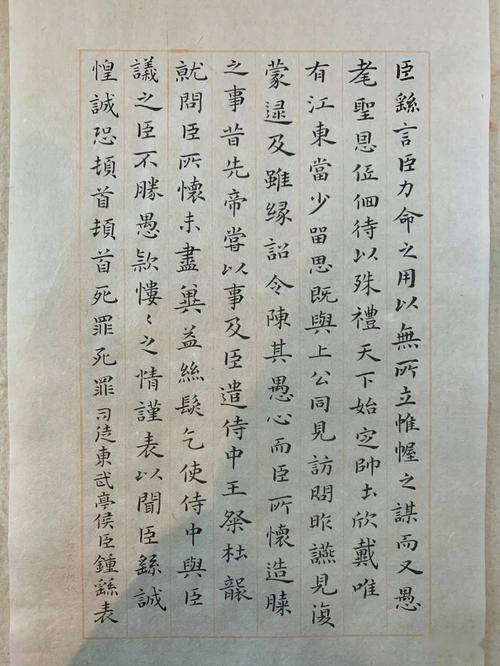 臣繇言臣力命之用以無所立惟幄之謀而又愚
耄聖恩低佪待以殊禮天下始定帥土欣戴唯
有江東當少留思既與上公同見訪問昨讌見復
蒙逮及雖緣詔令陳其愚心而臣所懷造膝
之事昔先帝嘗以事及臣遣侍中王粲杜襲
就問臣所懷未盡冀益絲髮乞使侍中與臣
議之臣不勝愚款慺〻之情謹表以聞臣繇誠
惶誠恐頓首頓首死罪死罪司徒東武亭侯臣鍾繇表